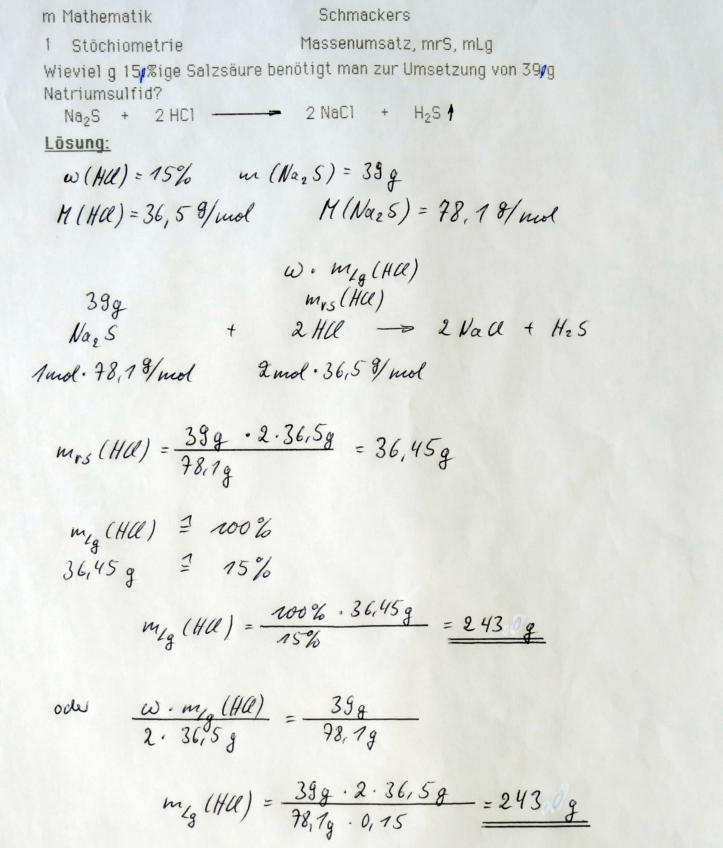 m Mathematik Schmackers
1 Stöchiometrie Massenumsatz, mrS, mLg
Wieviel g 15%ige Salzsäure benötigt man zur Umsetzung von 39 g
Natriumsulfid?
Na₂S + 2 HCl ⟶ 2 NaCl + H₂S ↑
Lösung:
ω(HCl) = 15% m (Na₂S) = 39 g
M(HCl) = 36,5 g/mol M(Na₂S) = 78,1 g/mol
ω · mLg(HCl)
39g mrs(HCl)
Na₂S + 2 HCl ⟶ 2 NaCl + H₂S
1mol · 78,1 g/mol 2mol · 36,5 g/mol
mrs(HCl) = 39g · 2 · 36,5g / 78,1g = 36,45g
mLg(HCl) ≙ 100%
36,45 g ≙ 15%
mLg(HCl) = 100% · 36,45g / 15% = 243 g
oder ω · mLg(HCl) / 2 · 36,5 g = 39g / 78,1g
mLg(HCl) = 39g · 2 · 36,5g / 78,1g · 0,15 = 243 g